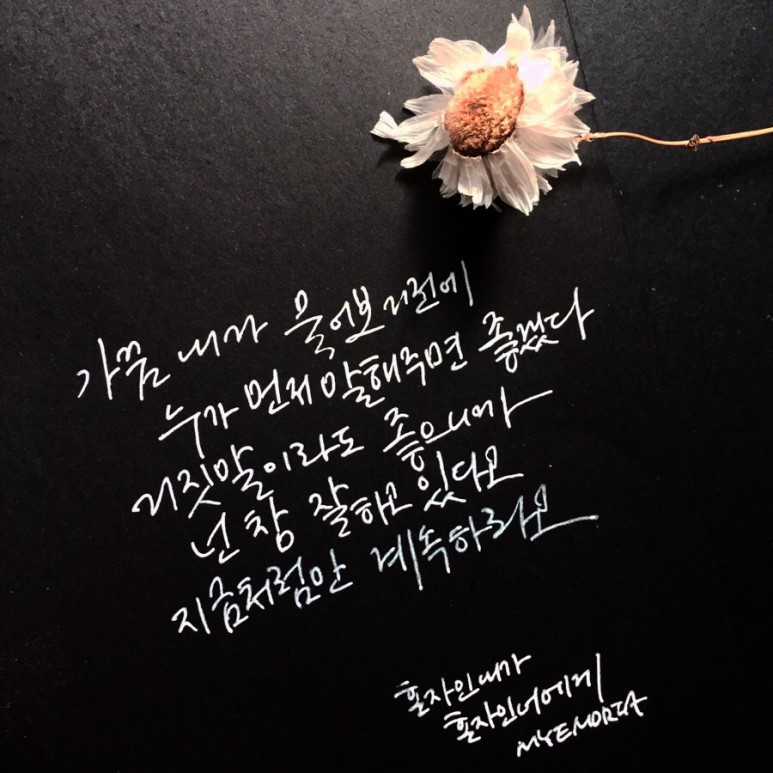 가끔 내가 물어보기전에
누가 먼저 말해주면 좋겠다
거짓말이라도 좋으니까
넌 참 잘하고 있다고
지금처럼만 계속하라고
혼자인내가
혼자인너에게